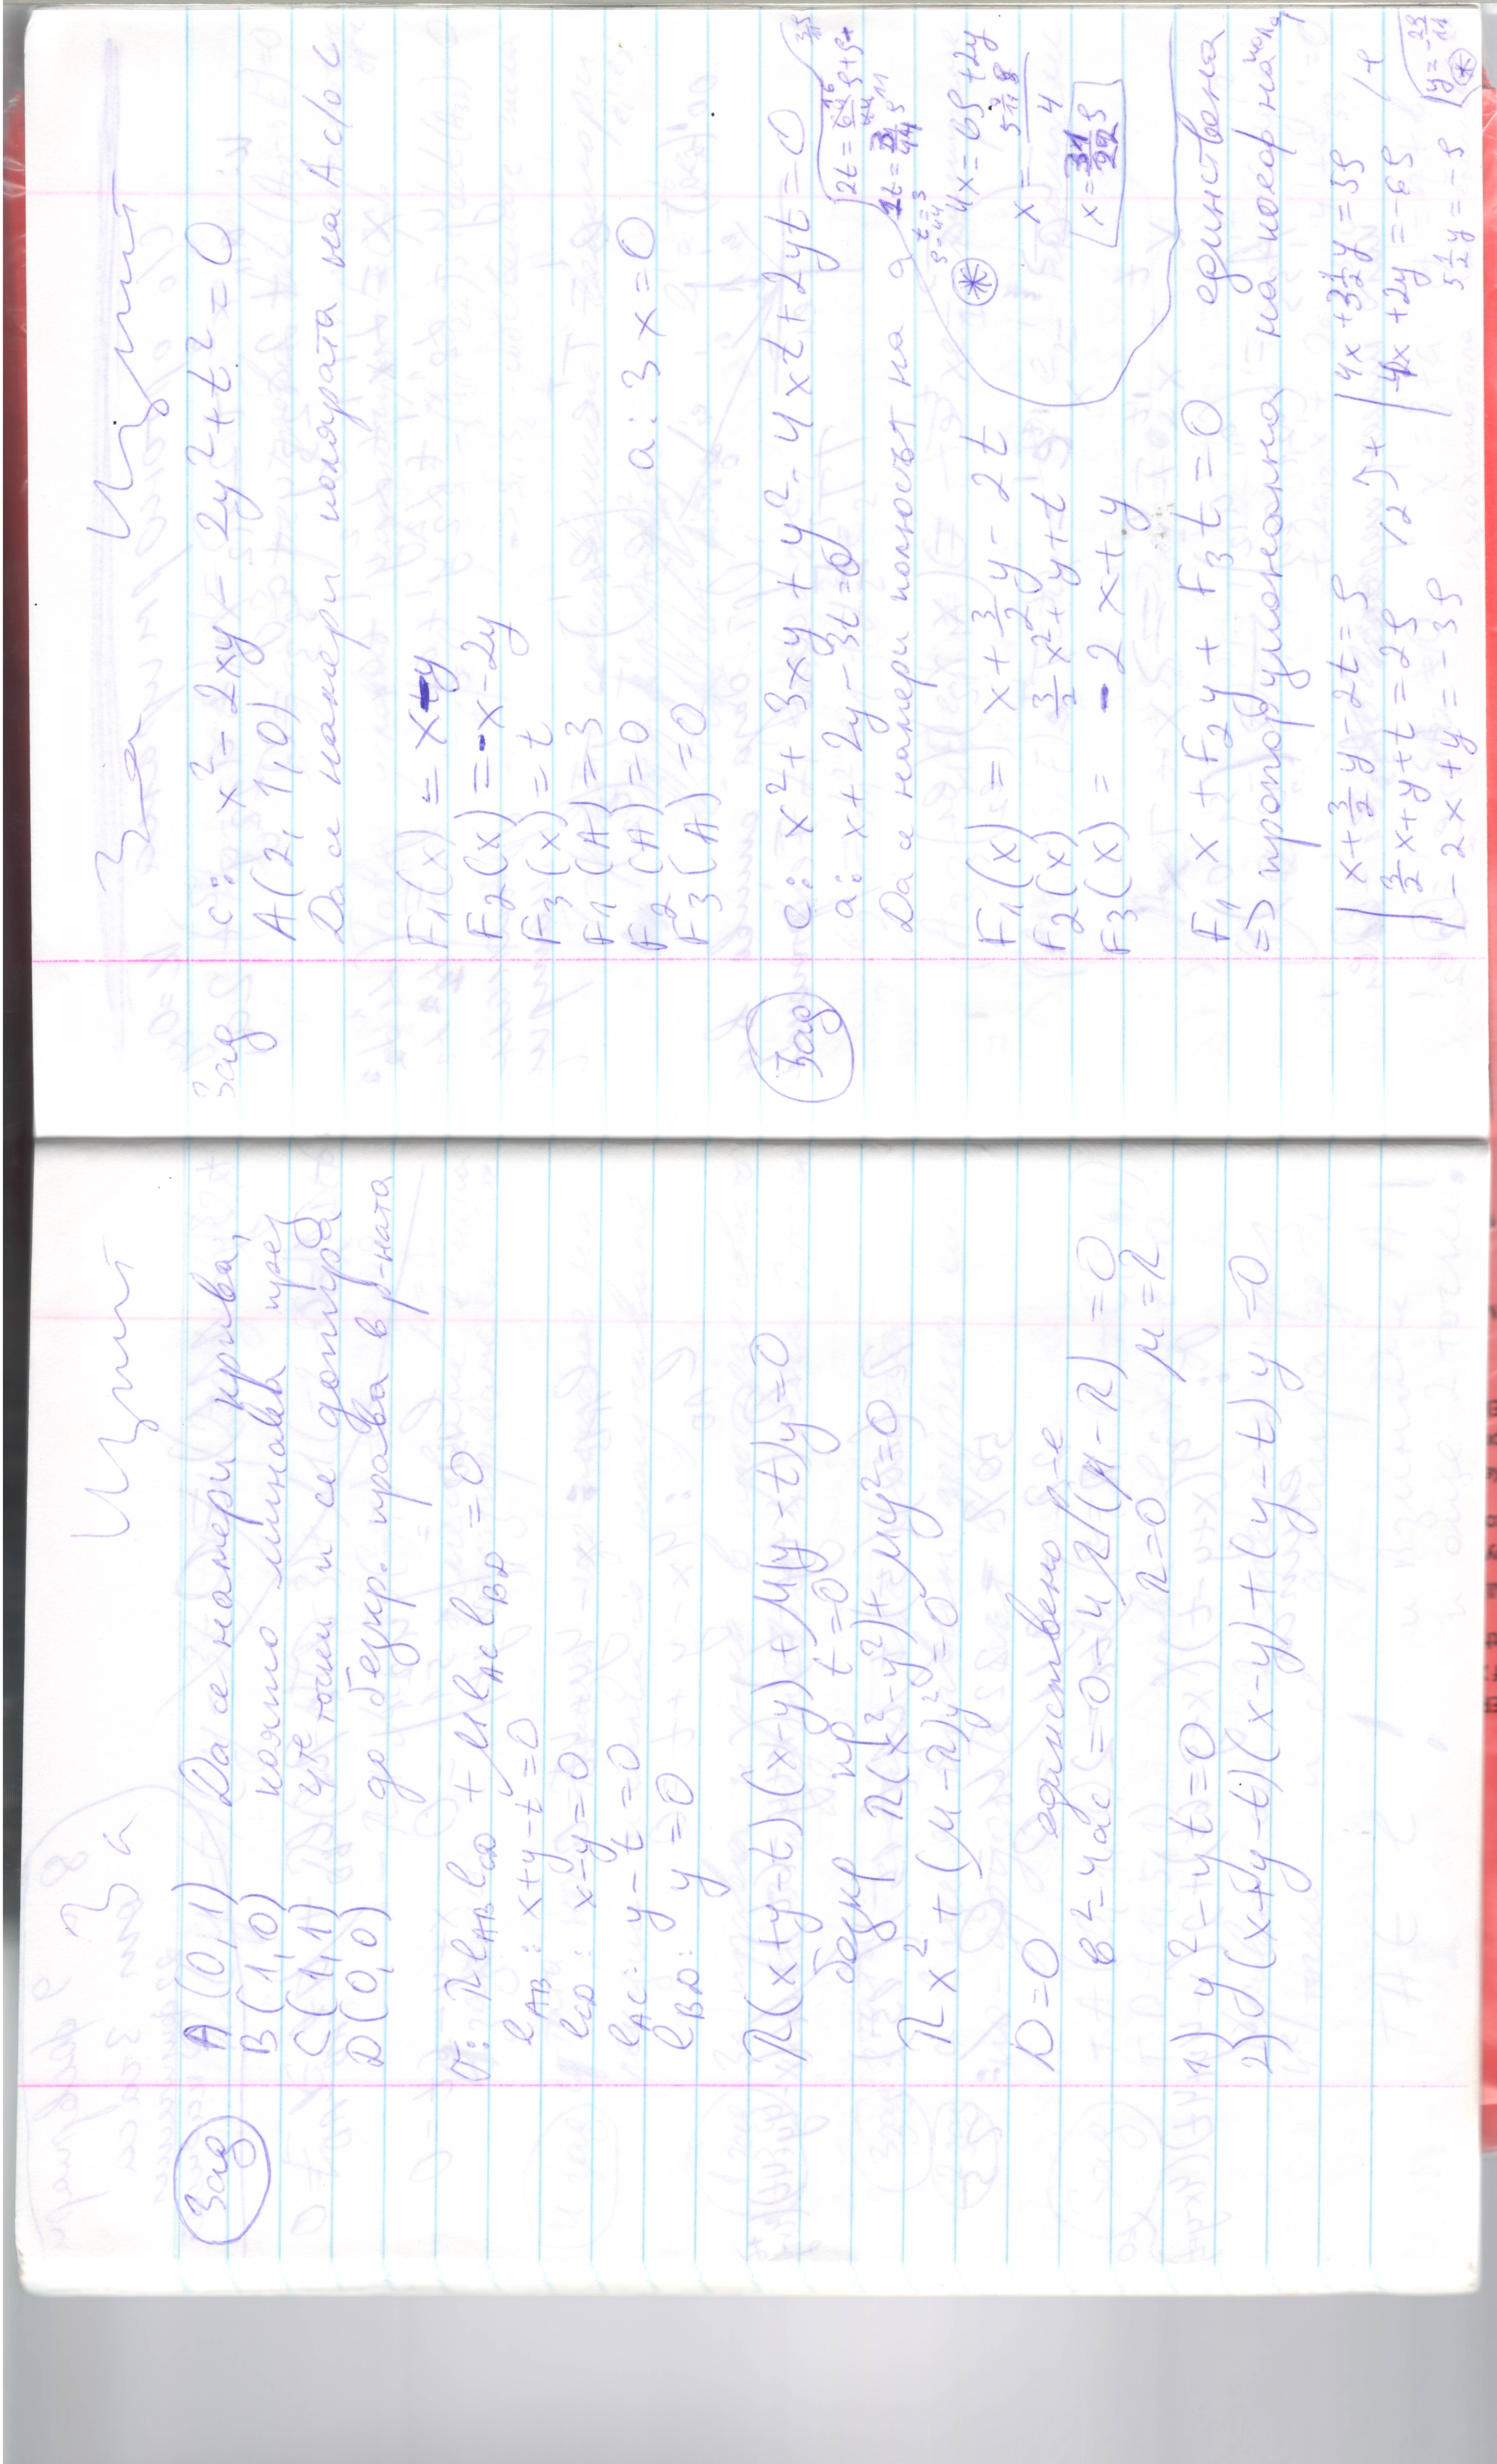 За Изпит
Зад A(0,1) Да се намери крива,
B(1,0) която минава през
C(1,1) 4те точки и се допира
D(0,0) до безкр. права в р-ната
σ: λ l_AB l_CD + μ l_AC l_BD = 0
l_AB: x+y-t=0
l_CD: x-y=0
l_AC: y-t=0
l_BD: y=0
λ(x+y-t)(x-y)+μ(y-t)y=0
безкр пр t=0
λ(x²-y²)+μy²=0
λx²+(μ-λ)y²=0
D=0 единствено р-е
b²-4ac=0-4λ(μ-λ)=0
λ=0 μ=λ
1) y²-yt=0
2) (x+y-t)(x-y)+(y-t)y=0
За Изпит
Зад c: x²-2xy-2y²+t²=0
A(2,1,0)
Да се намери полярата на A спр. c
F₁(x)=x-y
F₂(x)=-x-2y
F₃(x)=t
F₁(A)=3
F₂(A)=0
F₃(A)=0 a: 3x=0
Зад c: x²+3xy+y²-4xt+2yt=0
a: x+2y-3t=0
Да се намери полюсът на a
F₁(x)=x+3/2y-2t
F₂(x)=3/2x²+y+t
F₃(x)=-2x+y
4x=6ρ+2y
x=31/22ρ
F₁x+F₂y+F₃t=0 единствена
=> пропорционална на коорд на пола
x+3/2y-2t=ρ
3/2x+y+t=2ρ /2 ) +
-2x+y=-3ρ
4x+3 1/2y=5ρ /+
-4x+2y=-6ρ
5 1/2y=-ρ
y=-2ρ/11